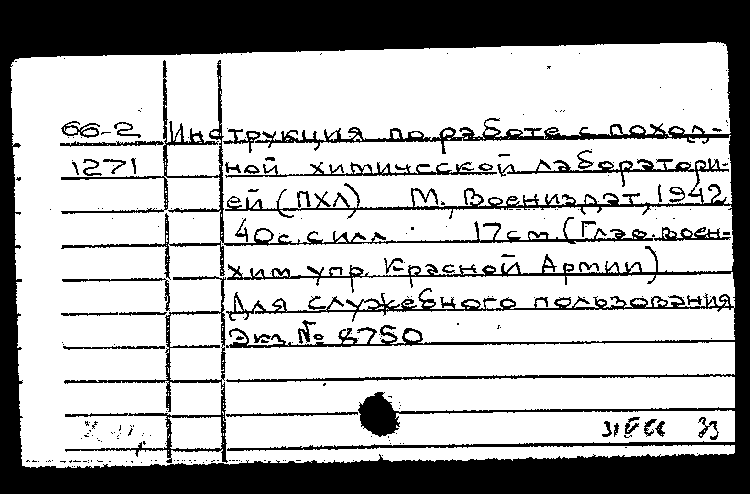 66-2 Инструкция по работе с поход-
1271 ной химической лаборатори-
ей (ПХЛ) М., Воениздат, 1942
40с. с илл. 17см. (Глав. воен-
хим. упр. Красной Армии)
Для служебного пользования
Экз. № 8750